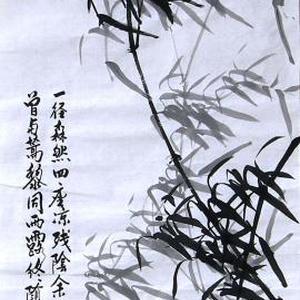 一径森然四座凉残陰余
曾与蒿藜同雨露终随